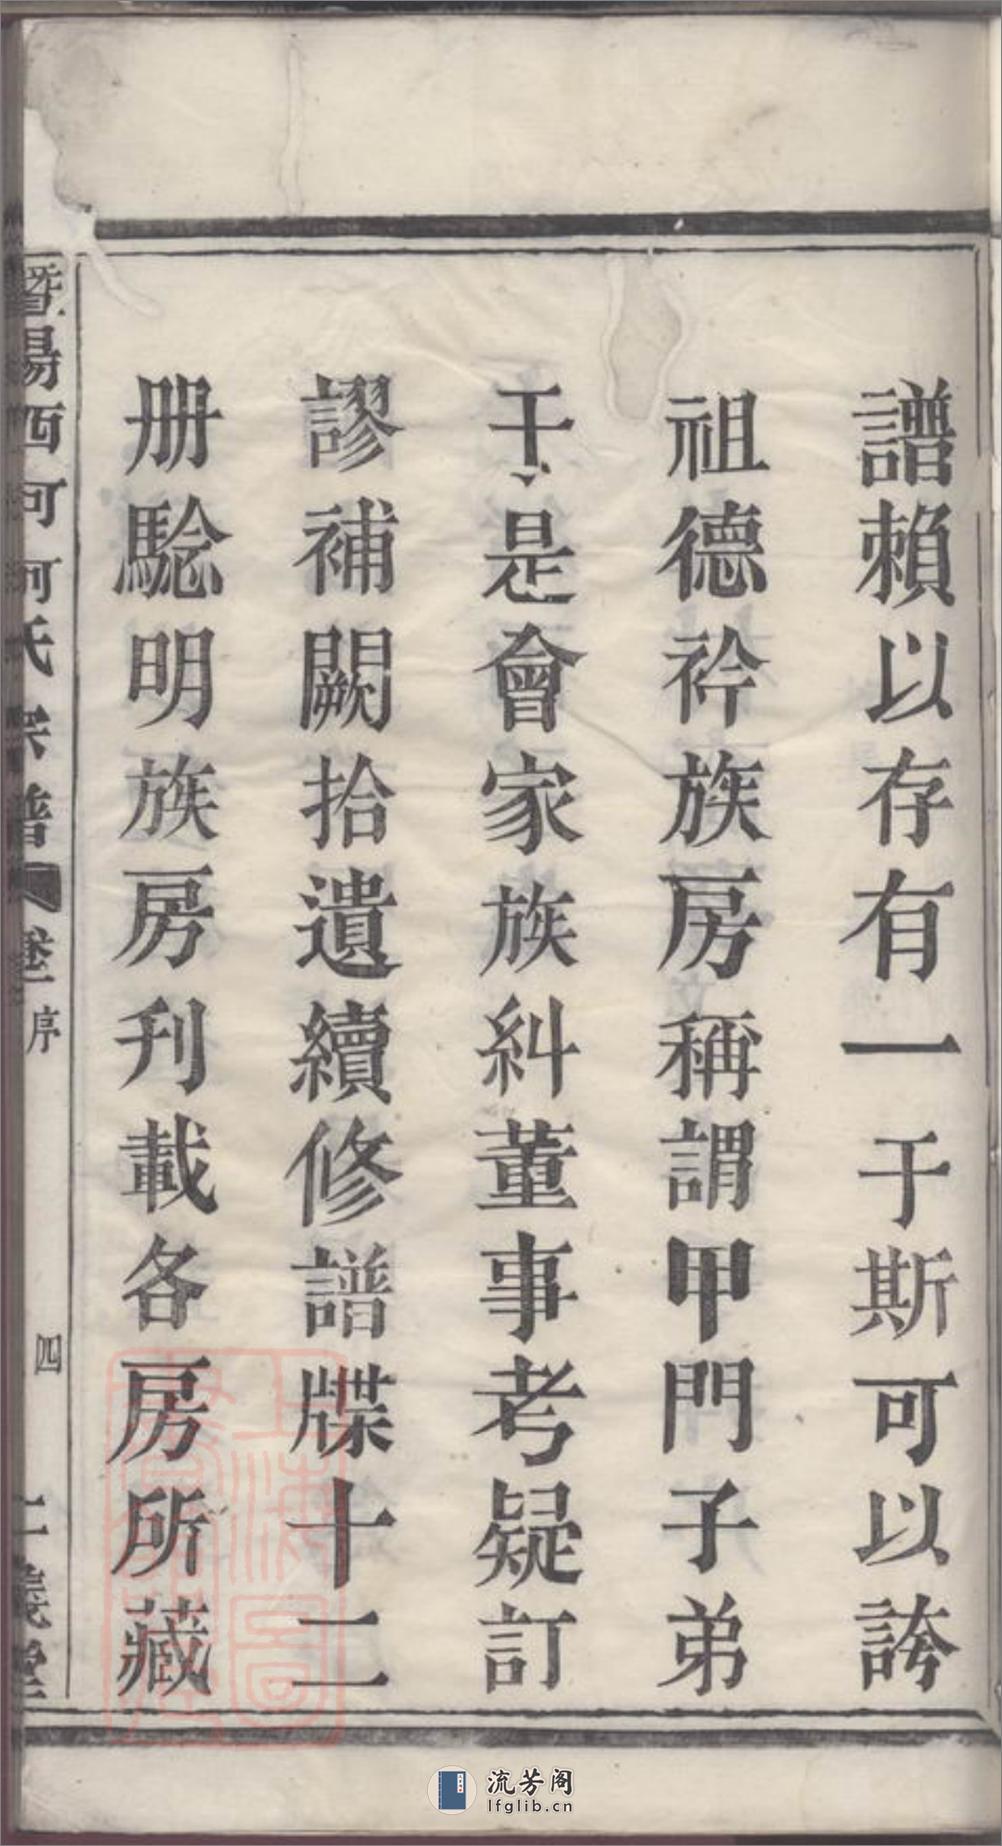 譜賴以存有一于斯可以誇
祖德衿族房稱謂甲門子弟
于是會家族糾董事考疑訂
謬補闕拾遺續修譜牒十二
册騐明族房刊載各房所藏
暨陽西河何氏宗譜 卷一 序 四 義堂
流芳阁
lfglib.cn